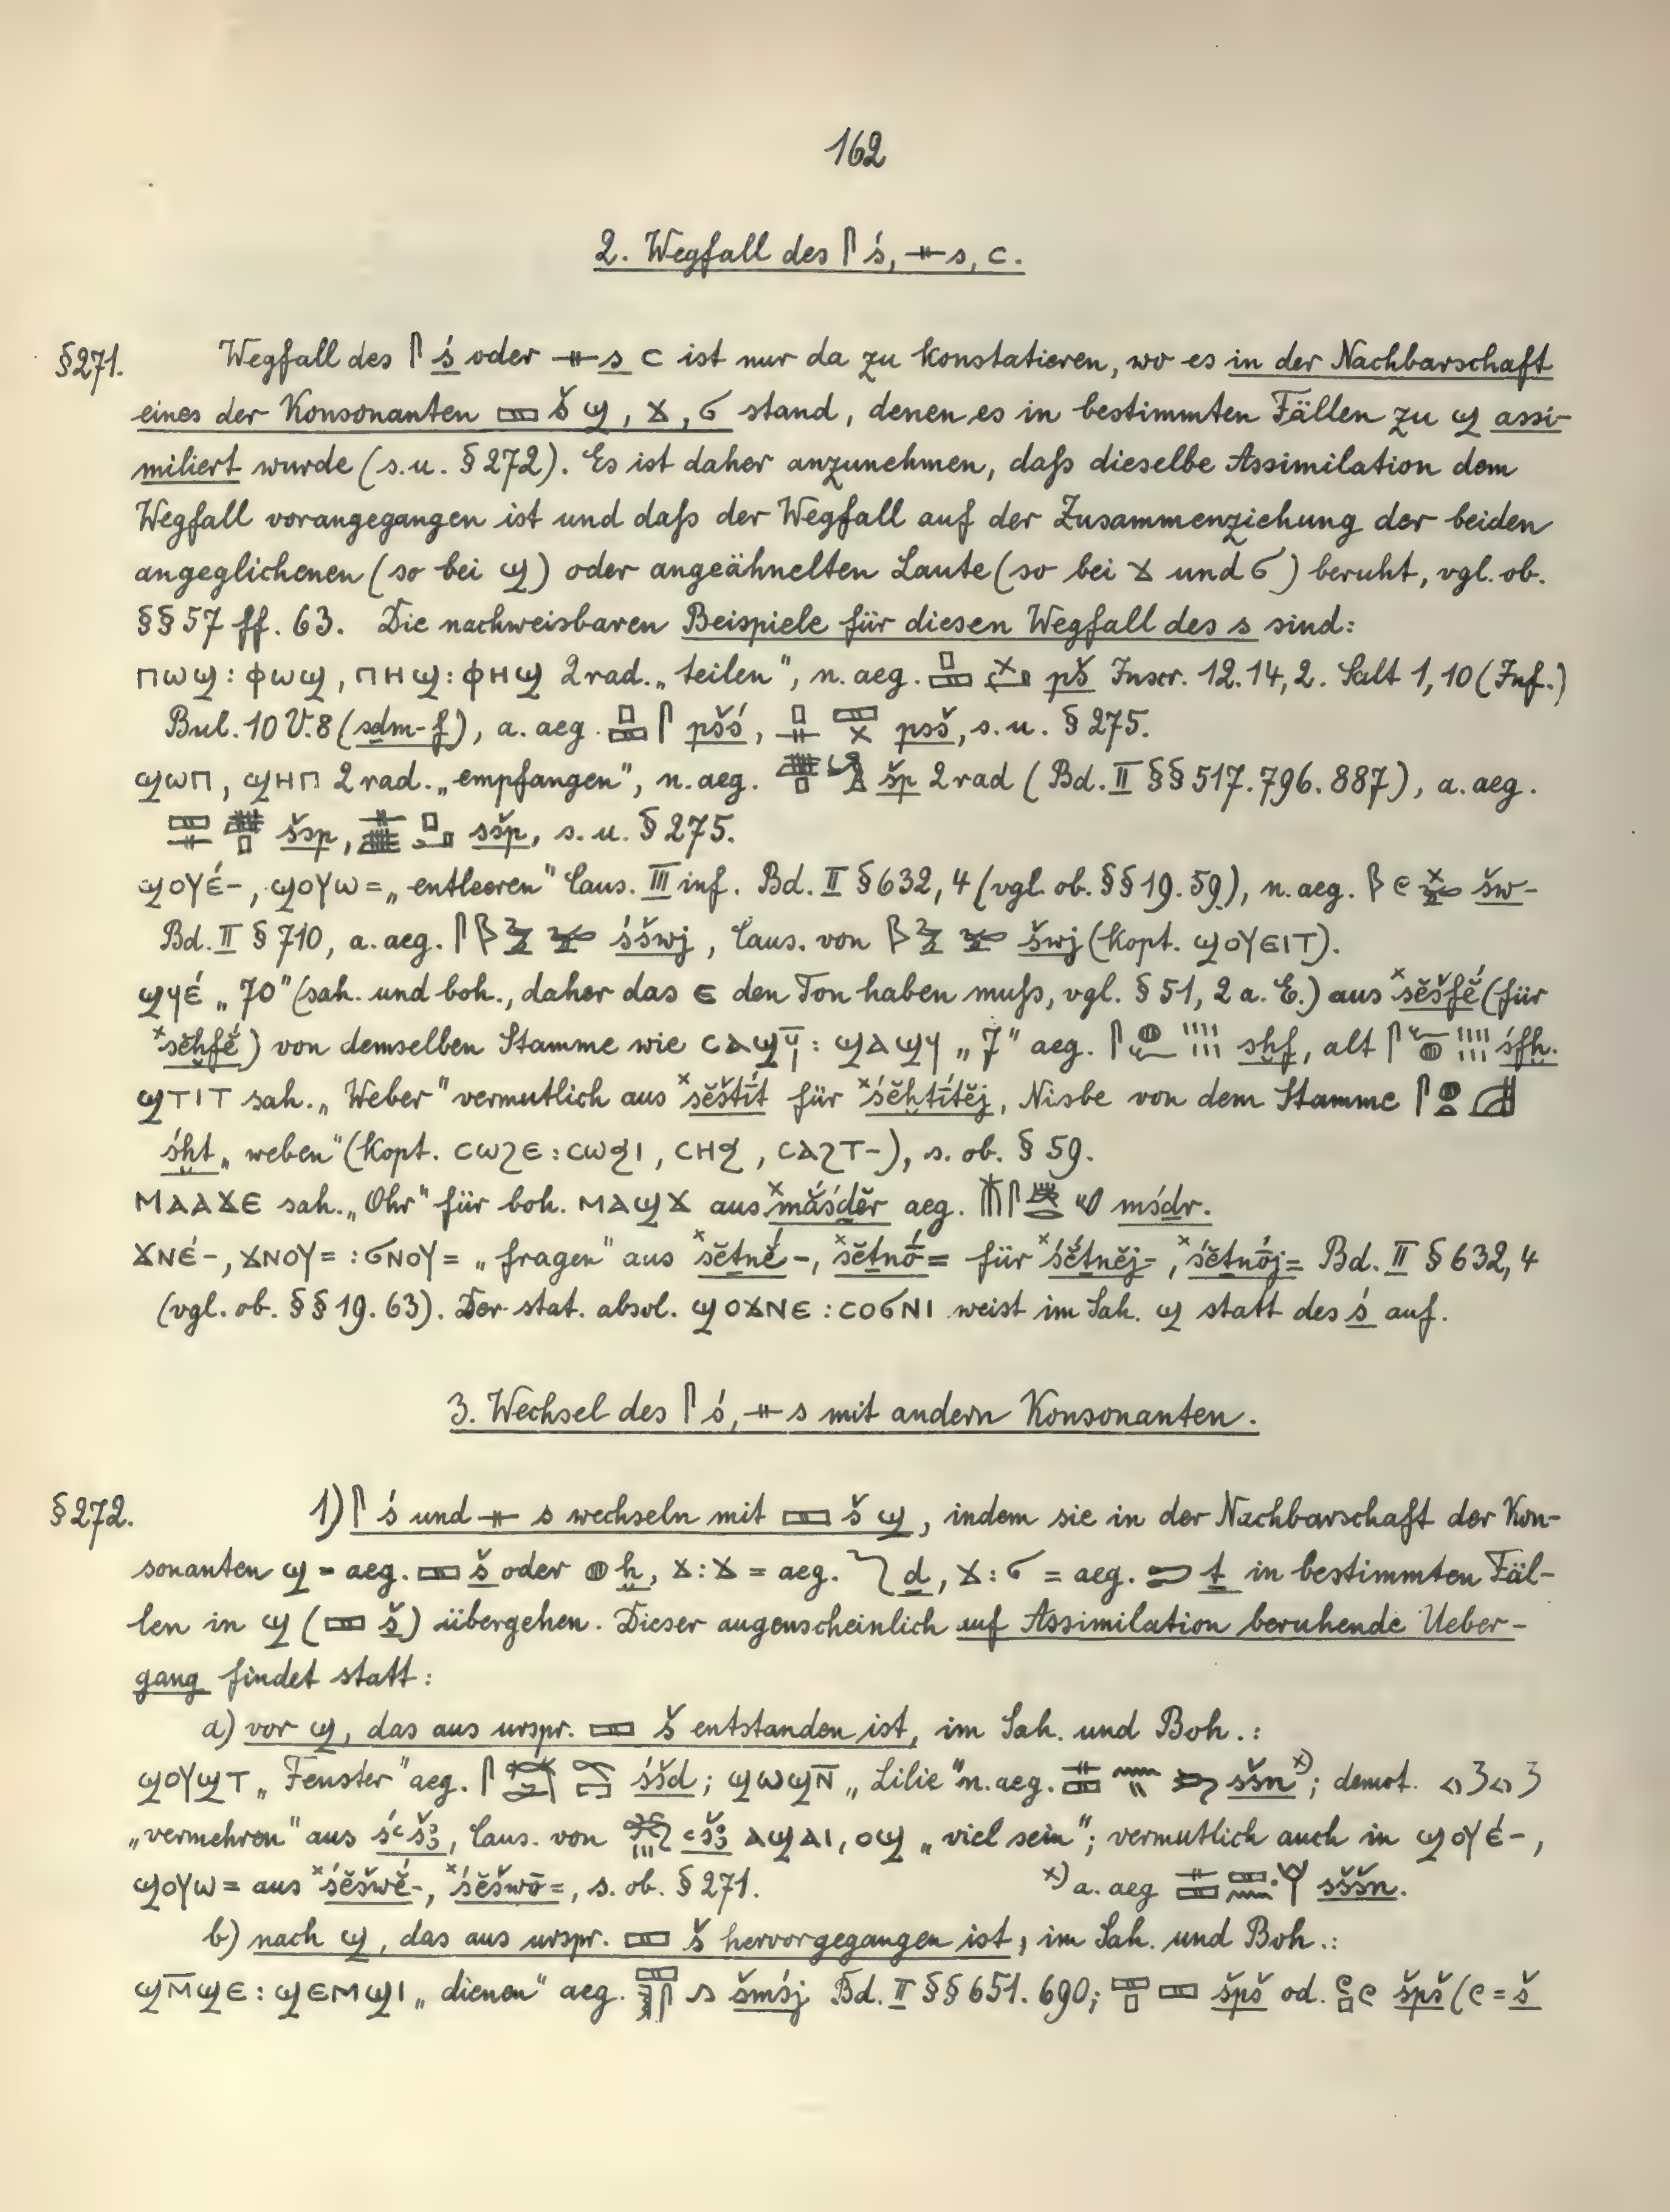 162
2. Wegfall des 𓋴 ś, 𓊃 s, ⲥ.
§271. Wegfall des 𓋴 ś oder 𓊃 s ⲥ ist nur da zu konstatieren, wo es in der Nachbarschaft
eines der Konsonanten 𓈙 š ϣ, ϫ, ϭ stand, denen es in bestimmten Fällen zu ϣ assi-
miliert wurde (s.u. §272). Es ist daher anzunehmen, daß dieselbe Assimilation dem
Wegfall vorangegangen ist und daß der Wegfall auf der Zusammenziehung der beiden
angeglichenen (so bei ϣ) oder angeähnelten Laute (so bei ϫ und ϭ) beruht, vgl. ob.
§§57 ff. 63. Die nachweisbaren Beispiele für diesen Wegfall des s sind:
ⲡⲱϣ : ⲫⲱϣ, ⲡⲏϣ : ⲫⲏϣ 2rad. „teilen", n. aeg. pš Inscr. 12.14,2. Salt 1,10 (Inf.)
Bul. 10 V.8 (sḏm-f), a. aeg. 𓊪𓈙𓋴 pšś, psš, s. u. §275.
ϣⲱⲡ, ϣⲏⲡ 2rad. „empfangen", n. aeg. šp 2rad (Bd. II §§517.796.887), a. aeg.
šsp, sšp, s. u. §275.
ϣⲟⲩⲉ́-, ϣⲟⲩⲱ= „entleeren" Caus. III inf. Bd. II §632,4 (vgl. ob. §§19.59), n. aeg. šw-
Bd. II §710, a. aeg. śšwj, Caus. von šwj (kopt. ϣⲟⲩⲉⲓⲧ).
ϣϥⲉ́ „70" (sah. und boh., daher das ⲉ den Ton haben muß, vgl. §51, 2 a. E.) aus ˣsĕšfĕ́ (für
ˣsĕḫfĕ́) von demselben Stamme wie ⲥⲁϣϥ̄ : ϣⲁϣϥ „7" aeg. sḫf, alt śfḫ.
ϣⲧⲓⲧ sah. „Weber" vermutlich aus ˣsĕštī́t für ˣśĕḫtī́tĕj, Nisbe von dem Stamme
śḫt „weben" (kopt. ⲥⲱϩⲉ : ⲥⲱϧⲓ, ⲥⲏϧ, ⲥⲁϩⲧ-), s. ob. §59.
ⲙⲁⲁϫⲉ sah. „Ohr" für boh. ⲙⲁϣϫ aus ˣmắśḏĕr aeg. mśḏr.
ϫⲛⲉ́-, ϫⲛⲟⲩ= : ϭⲛⲟⲩ= „fragen" aus ˣsĕṯnĕ́-, ˣsĕṯnṓ= für ˣśĕ́ṯnĕj-, ˣśĕṯnṓj= Bd. II §632,4
(vgl. ob. §§19.63). Der stat. absol. ϣⲟϫⲛⲉ : ⲥⲟϭⲛⲓ weist im Sah. ϣ statt des ś auf.
3. Wechsel des 𓋴 ś, 𓊃 s mit andern Konsonanten.
§272. 1) 𓋴 ś und 𓊃 s wechseln mit 𓈙 š ϣ, indem sie in der Nachbarschaft der Kon-
sonanten ϣ = aeg. 𓈙 š oder 𓐍 ḫ, ϫ : ϫ = aeg. 𓆓 ḏ, ϫ : ϭ = aeg. 𓍿 ṯ in bestimmten Fäl-
len in ϣ (𓈙 š) übergehen. Dieser augenscheinlich auf Assimilation beruhende Ueber-
gang findet statt:
a) vor ϣ, das aus urspr. 𓈙 š entstanden ist, im Sah. und Boh.:
ϣⲟⲩϣⲧ „Fenster" aeg. śšd; ϣⲱϣⲛ̄ „Lilie" n. aeg. sšn ˣ⁾; demot.
„vermehren" aus śꜥšꜣ, Caus. von ꜥšꜣ ⲁϣⲁⲓ, ⲟϣ „viel sein"; vermutlich auch in ϣⲟⲩⲉ́-,
ϣⲟⲩⲱ= aus ˣśĕšwĕ́-, ˣśĕšwṓ=, s. ob. §271.
ˣ⁾ a. aeg sššn.
b) nach ϣ, das aus urspr. 𓈙 š hervorgegangen ist, im Sah. und Boh.:
ϣⲙ̄ϣⲉ : ϣⲉⲙϣⲓ „dienen" aeg. šmśj Bd. II §§651.690; 𓈙𓊪𓈙 špš od. špš (ϱ = š